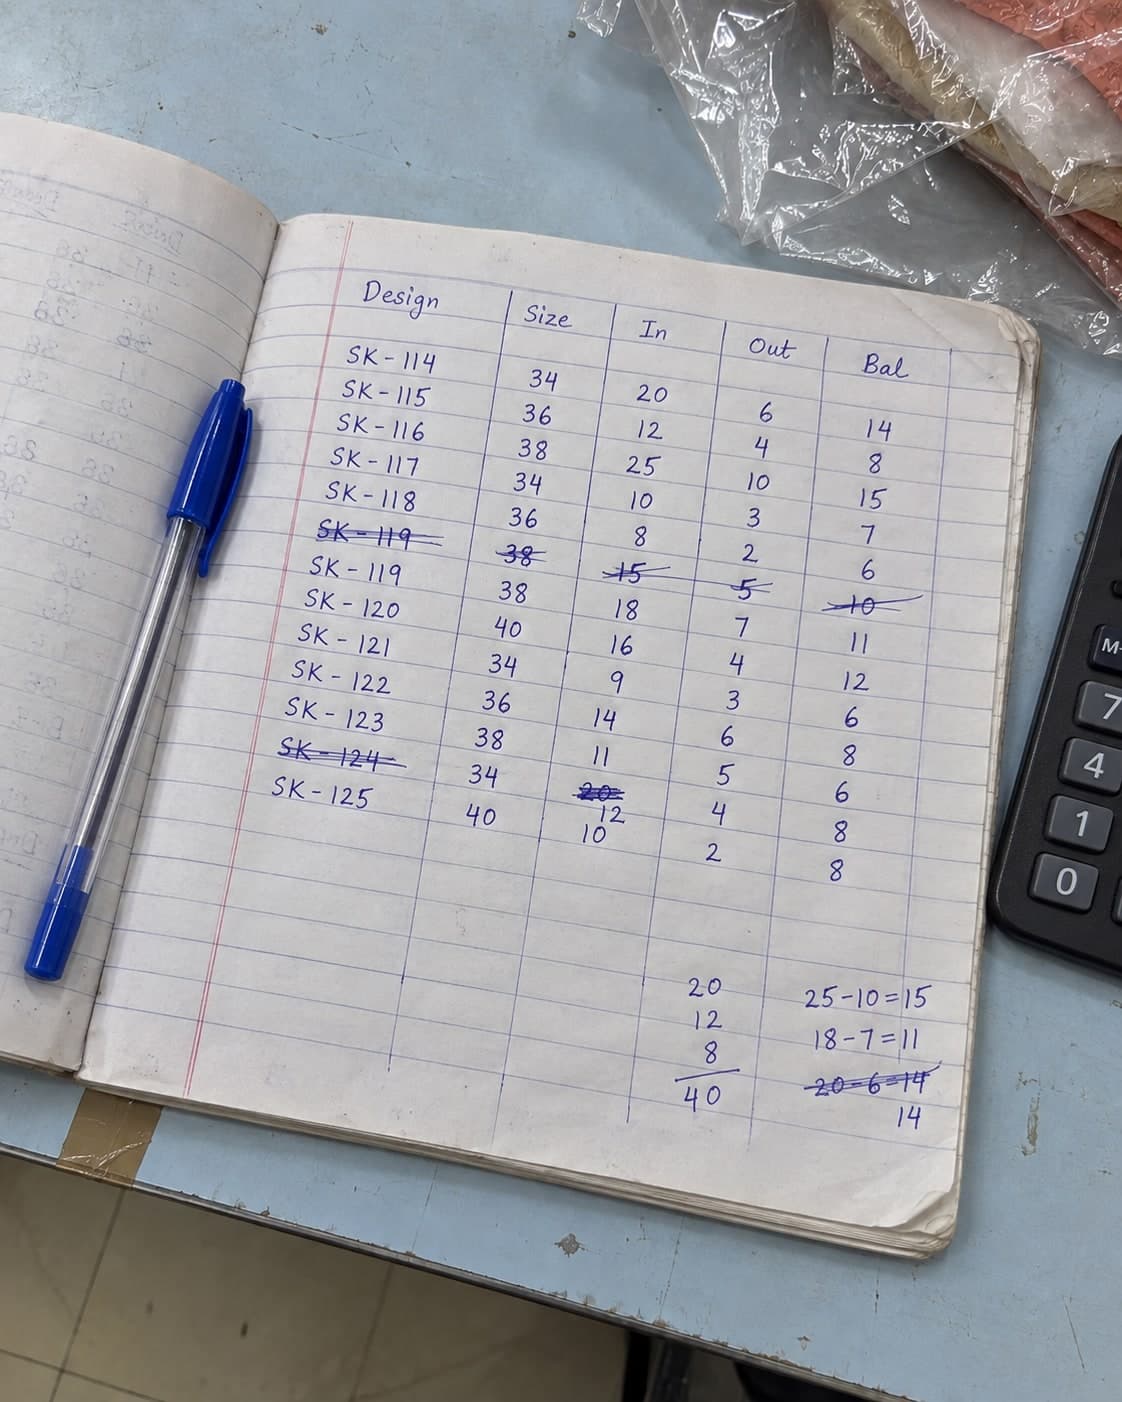 Design Size In Out Bal
SK-114 34 20 6 14
SK-115 36 12 4 8
SK-116 38 25 10 15
SK-117 34 10 3 7
SK-118 36 8 2 6
SK-119 38 15 5 10
SK-119 38 18 7 11
SK-120 40 16 4 12
SK-121 34 9 3 6
SK-122 36 14 6 8
SK-123 38 11 5 6
SK-124 34 20 12 4 8
SK-125 40 10 2 8
20 25-10=15
12 18-7=11
8 20-6=14
40 14
M-
7
4
1
0